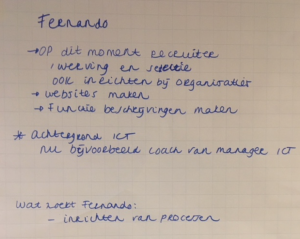 Fernando
→ Op dit moment recruiter
werving en selectie
ook inrichten bij organisaties
→ websites maken
→ functie beschrijvingen maken
* Achtergrond ICT
nu bijvoorbeeld coach van manager ICT
Wat zoekt Fernando:
- inrichten van processen